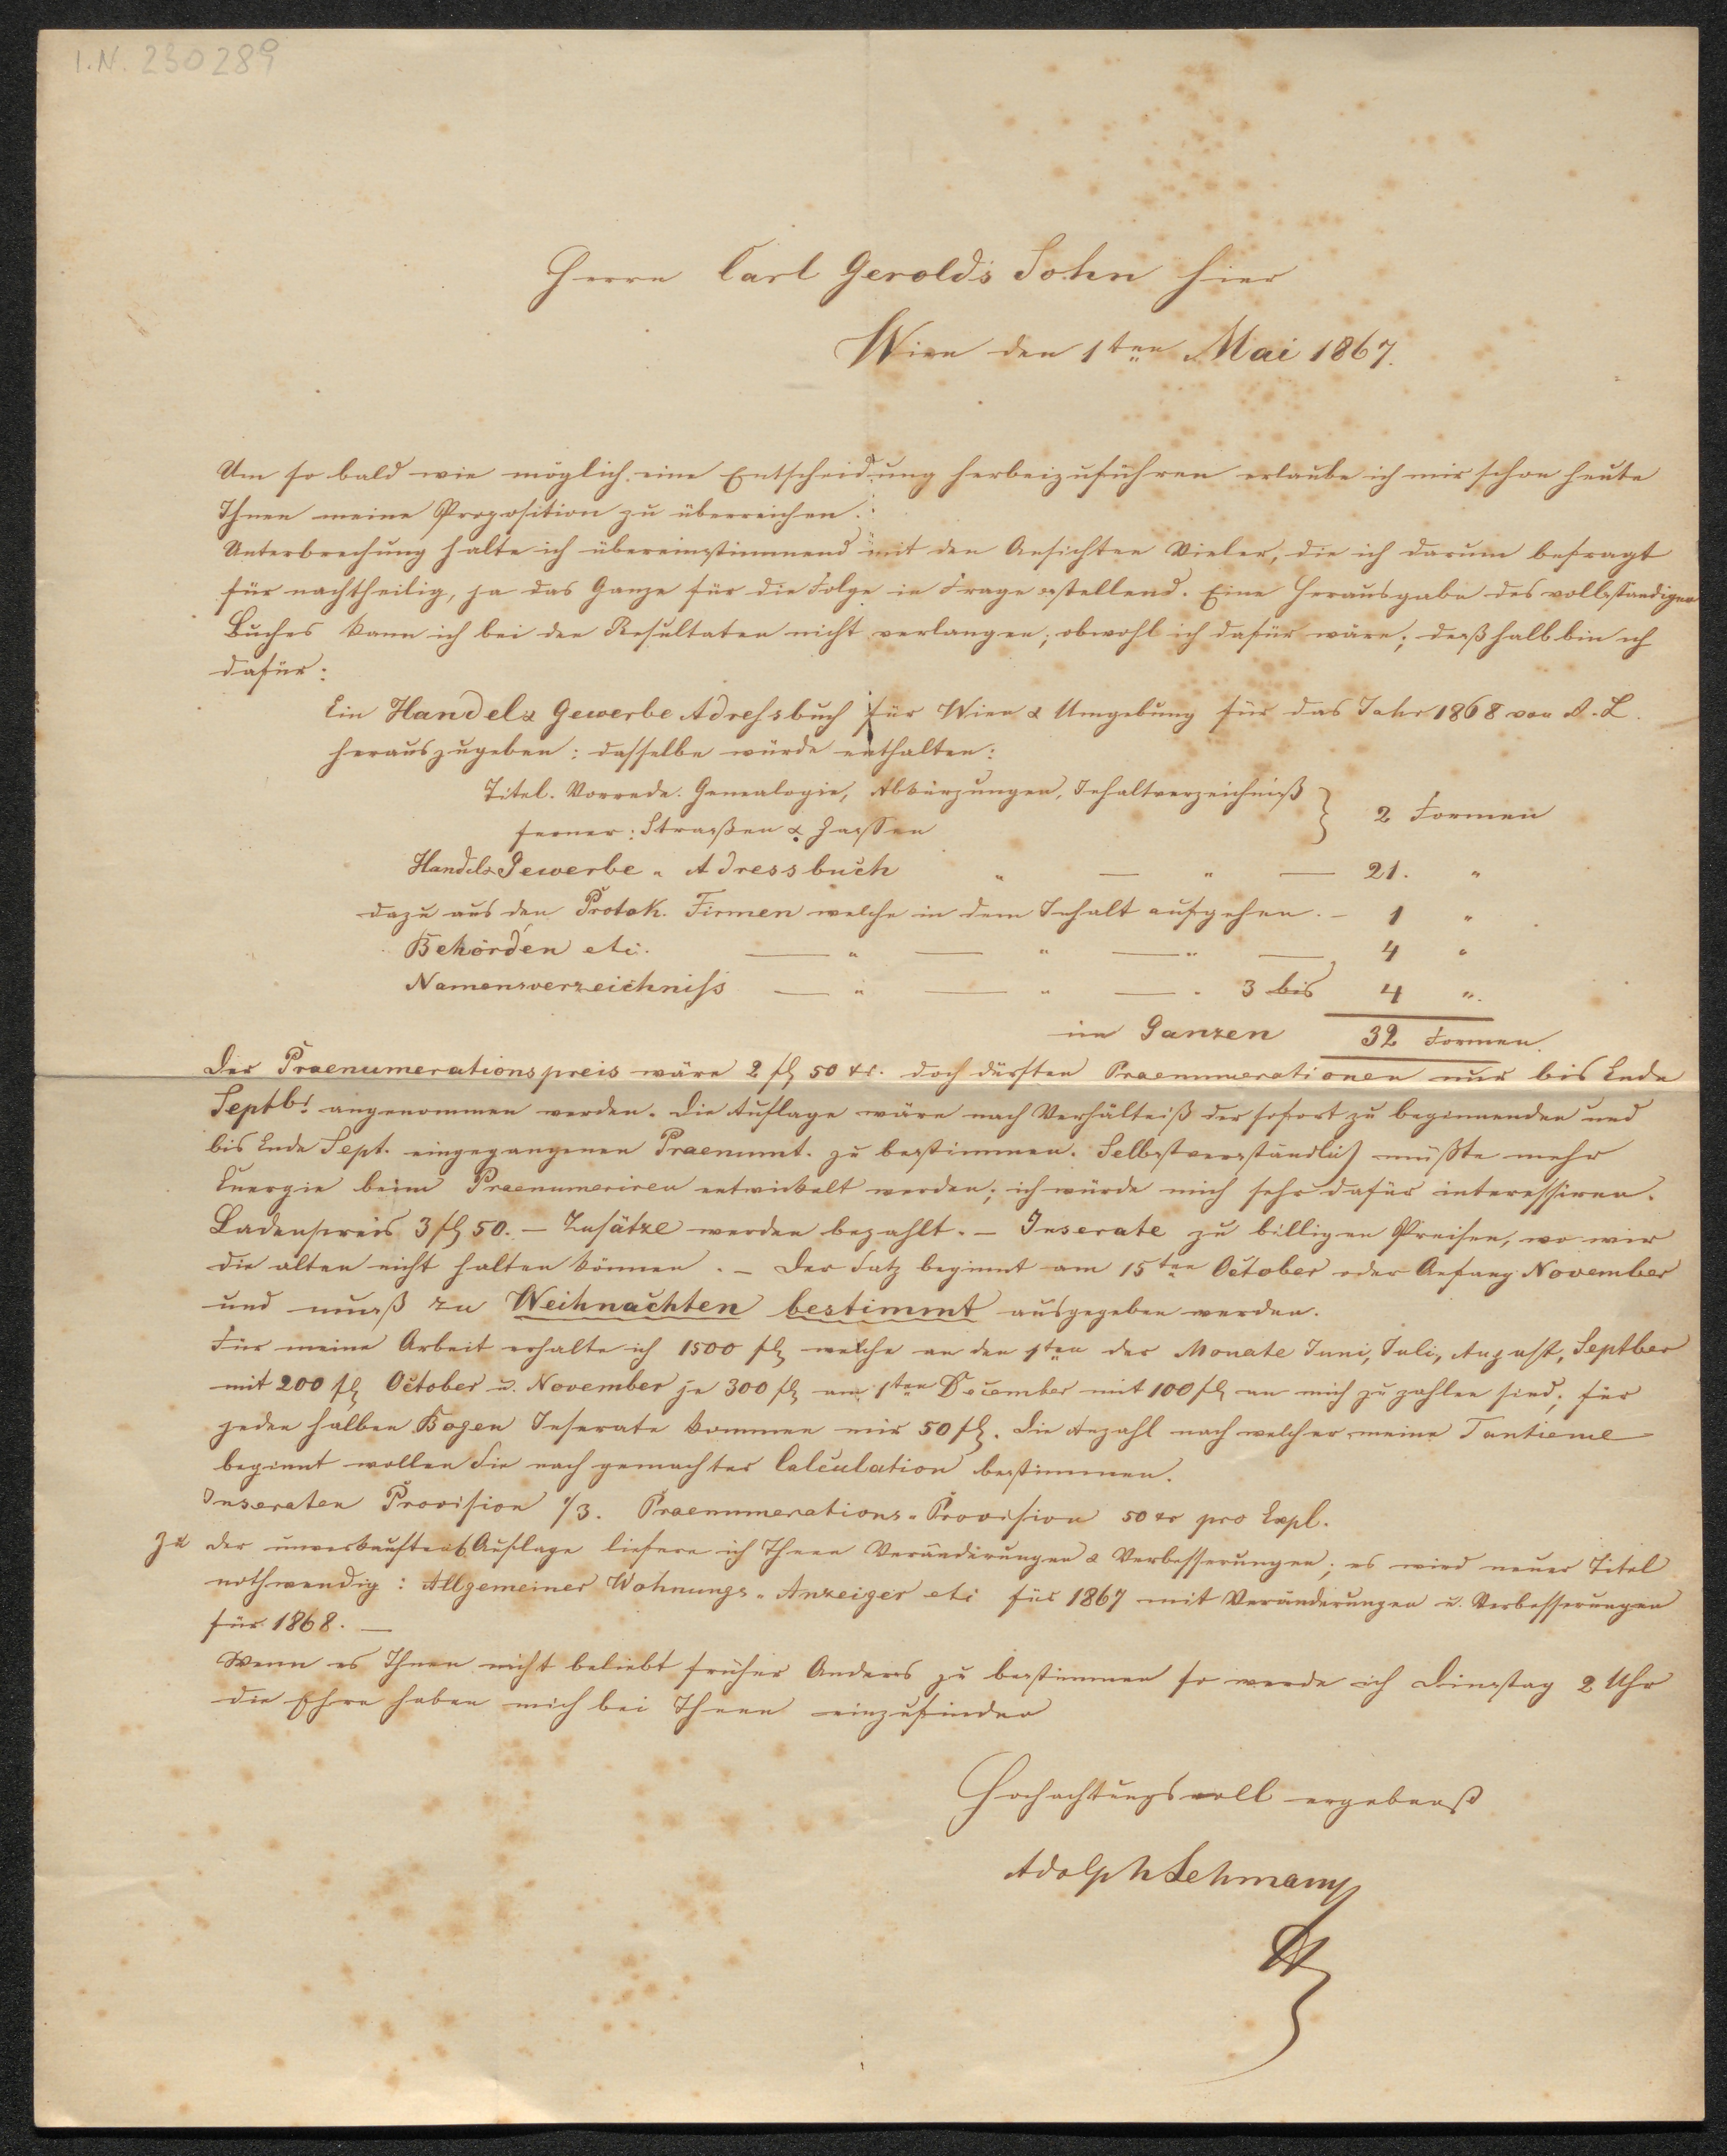 I.N. 230289
Herrn Carl Gerold's Sohn hier
Wien den 1ten Mai 1867.
Um so bald wie möglich eine Entscheidung herbeizuführen erlaube ich mir schon heute
Ihnen meine Proposition zu überreichen.
Unterbrechung halte ich übereinstimmend mit den Ansichten Vieler, die ich darum befragt
für nachtheilig, ja das Ganze für die Folge in Frage stellend. Eine Herausgabe des vollständigen
Buches kann ich bei den Resultaten nicht verlangen, obwohl ich dafür wäre; deßhalb bin ich
dafür:
Ein Handels Gewerbe Adressbuch für Wien & Umgebung für das Jahr 1868 von A. L.
herauszugeben: dasselbe würde enthalten:
Titel. Vorrede. Genealogie, Abkürzungen, Inhaltverzeichniß
ferner: Straßen & Gassen } 2 Formen
Handels Gewerbe - Adressbuch " — " — 21. "
dazu aus den Protok. Firmen welche in dem Inhalt aufgehen. — 1 "
Behörden etc. — " — " — " — 4 "
Namensverzeichniss — " — " — " 3 bis 4 ".
im Ganzen 32 Formen.
Der Praenumerationspreis wäre 2 fl 50 kr. doch dürften Praenumerationen nur bis Ende
Septbr. angenommen werden. Die Auflage wäre nach Verhältniß der sofort zu beginnenden und
bis Ende Sept. eingegangenen Praenumt. zu bestimmen. Selbstverständlich müßte mehr
Energie beim Praenumeriren entwickelt werden; ich würde mich sehr dafür interessiren.
Ladenpreis 3 fl 50. — Zusätze werden bezahlt. — Inserate zu billigen Preisen, wo wir
die alten nicht halten können. — Der Satz beginnt am 15ten October oder Anfang November
und muß zu Weihnachten bestimmt ausgegeben werden.
Für meine Arbeit erhalte ich 1500 fl welche an den 1ten der Monate Juni, Juli, August, Septber
mit 200 fl October u. November je 300 fl am 1ten December mit 100 fl an mich zu zahlen sind; für
jeden halben Bogen Inserate kommen mir 50 fl. Die Anzahl nach welcher meine Tantieme
beginnt wollen Sie nach gemachter Calculation bestimmen.
Inseraten Provision 1/3. Praenumerations-Provision 50 kr pro Expl.
Zu der unverkauften Auflage liefere ich Ihnen Veränderungen & Verbesserungen; es wird neuer Titel
nothwendig: Allgemeiner Wohnungs-Anzeiger etc für 1867 mit Veränderungen u. Verbesserungen
für 1868. —
Wenn es Ihnen nicht beliebt früher Anders zu bestimmen so werde ich Dinstag 2 Uhr
die Ehre haben mich bei Ihnen einzufinden
Hochachtungsvoll ergebenst
Adolph Lehmann